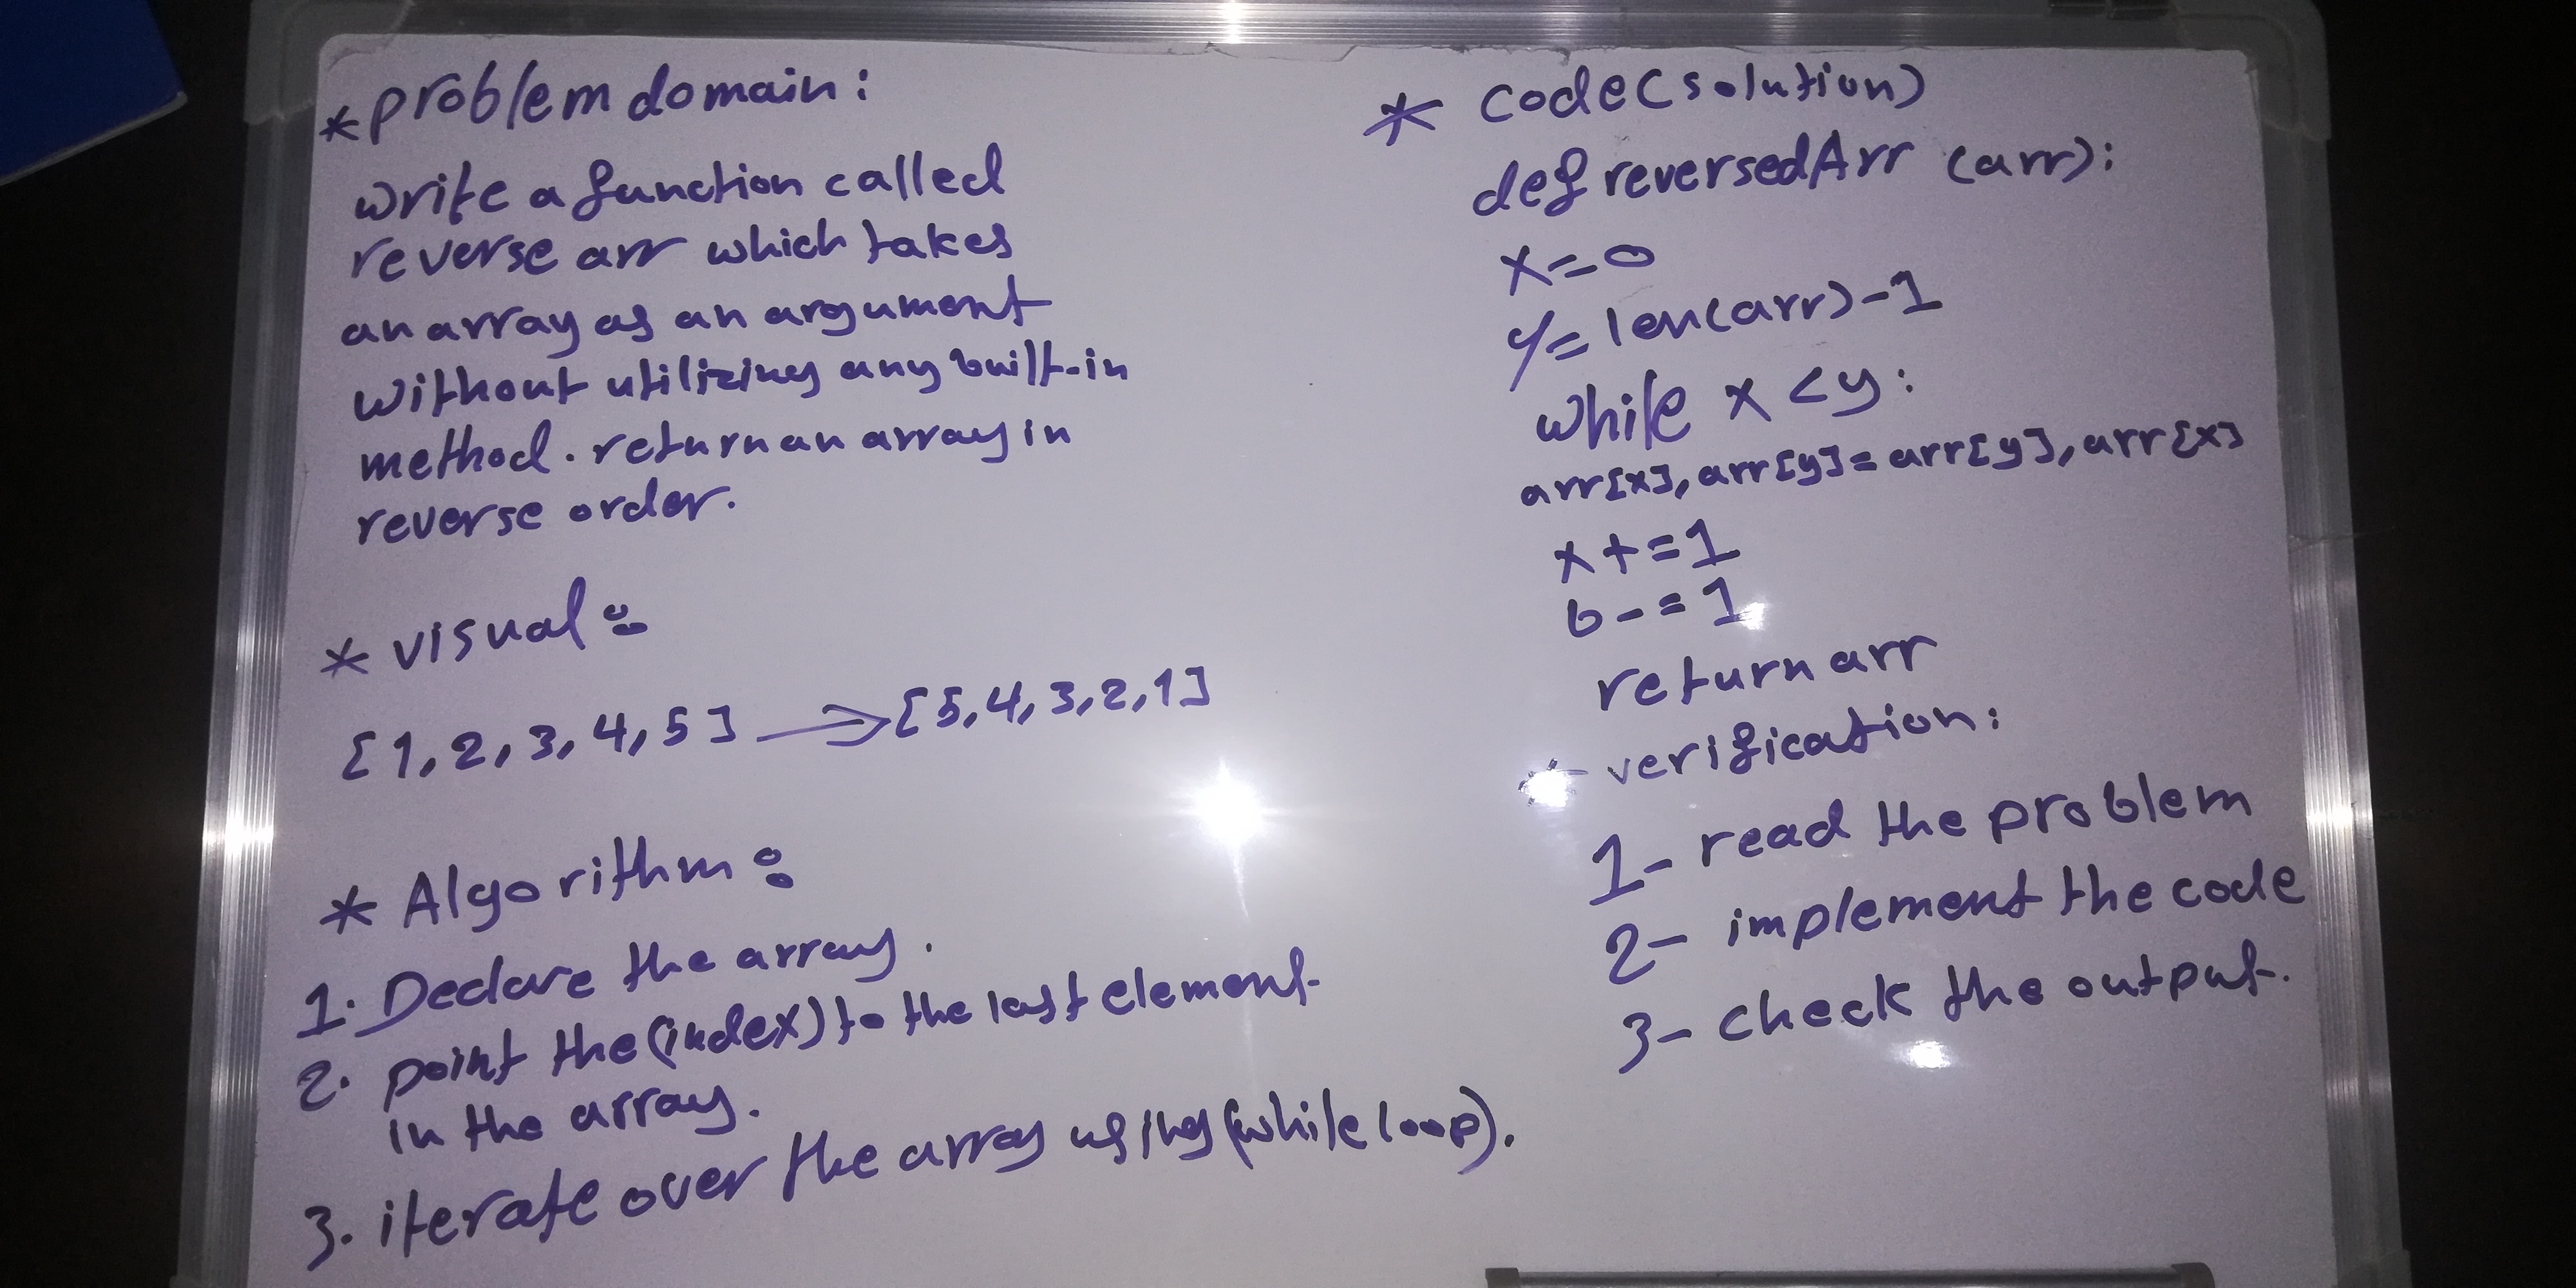 * problem domain:
write a function called
reverse arr which takes
an array as an argument
without utilizing any built-in
method. return an array in
reverse order.
* visual:
[1,2,3,4,5] → [5,4,3,2,1]
* Algorithm:
1. Declare the array.
2. point the (index) to the last element
in the array.
3. iterate over the array using (while loop).
* code (solution)
def reversedArr (arr):
x=0
y= len(arr)-1
while x<y:
arr[x],arr[y]=arr[y],arr[x]
x+=1
b-=1
return arr
* verification:
1- read the problem
2- implement the code
3- check the output.